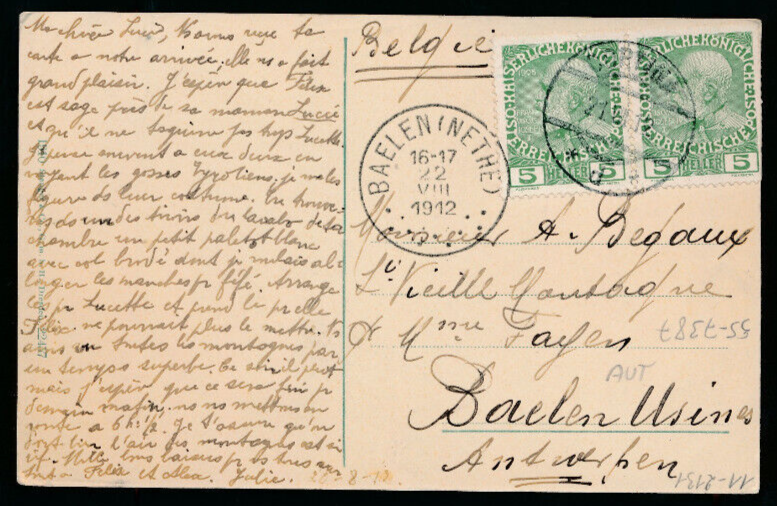 Ma chère Lucie, Nous avons reçu ta
carte a notre arrivée. elle m'a fait
grand plaisir. J'espère que Félix
est sage près de sa maman Lucie
et qu'il ne taquine pas trop Lucette.
Je pense souvent a eux deux en
voyant les gosses Tyroliens. je me les
figure ds leur costume.
des tiroirs du lavabo de ta
chambre un petit paletot blanc
avec col brodé dont je
longer les manches pr fifé. Arrange
les pr Lucette et prend le pr elle
Félix ne pourrait plus le mettre. Ns
avons vu toutes les montagnes par
un temps superbe. Ce soir il pleut
mais j'espère que ce sera fini pr
demain matin. ns ns mettrons en
route a 6 h ½. Je t'assure qu'on
dort bien l'air des montagnes est si
vif. Mille bons baisers pr vs tous
Félix et Julie. 20-8-12
Belgique
KAISERLICHE KÖNIGLICHE ÖSTERREICHISCHE POST
5 HELLER 5
KAISERLICHE KÖNIGLICHE ÖSTERREICHISCHE POST
5 HELLER 5
BAELEN (NETHE)
16-17
22
VIII
1912
Monsieur A. Begaux
La Vieille Montagne
Mme Fayen
55-7387
AUT
Baelen Usines
Antwerpen
11-2131